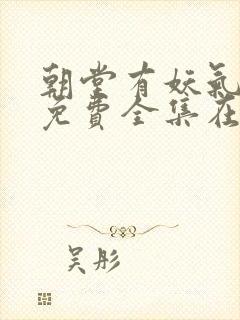 朝堂有妖氣
免費全集在
吴彤